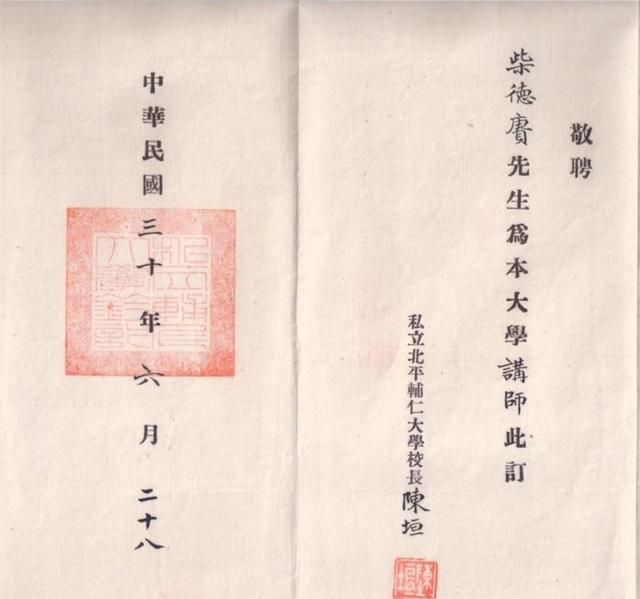 敬聘
柴德賡先生爲本大學講師此訂
私立北平輔仁大學校長陳垣
陳垣
中華民國三十年六月二十八